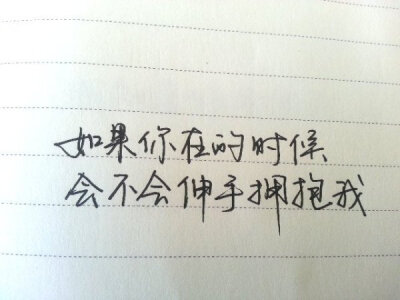 如果你在的时候
会不会伸手拥抱我